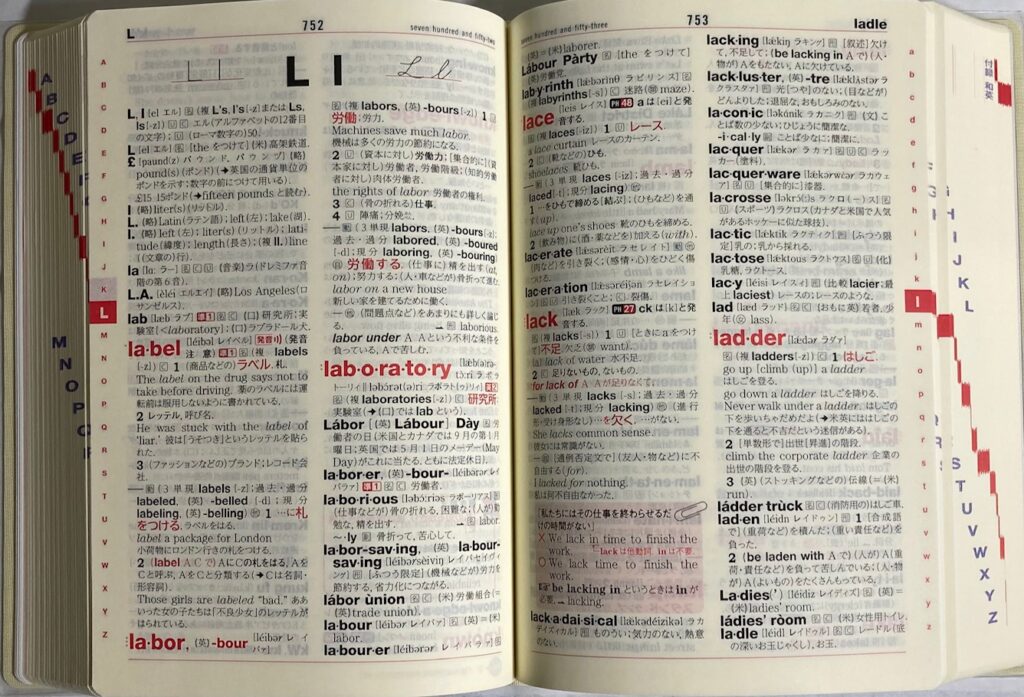 L
752
seven hundred and fifty-two
L l
L l
L l
L, l [el エル] 名 (複 L's, l's [-z] または Ls,
ls [-z]) U C エル(アルファベットの12番目
の文字); U (ローマ数字の)50.
L [el エル] 名 [the をつけて] (米) 高架鉄道.
£ (pound(z) パウンド, パウンヅ) (略)
pound(s) (ポンド) (➔英国の通貨単位の
ポンドを示す; 数字の前につけて用いる).
£15 15ポンド(➔fifteen pounds と読む).
l (略) liter(s) (リットル).
L. (略) Latin (ラテン語); left (左); lake (湖).
l. (略) left (左); liter(s) (リットル); lati-
tude (緯度); length (長さ); (複 ll.) line
(文章の行).
la [la: ラー] 名 C U (音楽) ラ(ドレミファ音
階の第6音).
L.A. [èléi エルエイ] (略) Los Angeles (ロ
サンゼルス).
lab [læb ラブ] 準1 名 C (口) 研究室; 実
験室 [<laboratory]; (口) ラブラドール犬.
la·bel [léibəl レイベル] 発音 (発音
注意) 準1 名 (複 labels
[-z]) C 1 (商品などの) ラベル, 札.
The label on the drug says not to
take before driving. 薬のラベルには運
転前は服用しないように書かれている.
2 レッテル, 呼び名.
He was stuck with the label of
'liar.' 彼は「うそつき」というレッテルを貼ら
れた.
3 (ファッションなどの)ブランド; レコード会
社.
— 動 (3単現 labels [-z]; 過去・過分
labeled, (英) -belled [-d]; 現分
labeling, (英) -belling) 他 1 …に札
をつける, ラベルをはる.
label a package for London
小荷物にロンドン行きの札をつける.
2 (label A C で) AにCの札をはる, Aを
Cと呼ぶ, AをCと分類する(➔Cは名詞・
形容詞).
Those girls are labeled "bad." ああ
いった女の子たちは「不良少女」のレッテルが
はられている.
la·bor, (英) -bour [léibər レイバァ]
名 (複 labors, (英) -bours [-z]) U 1
労働; 労力.
Machines save much labor.
機械は多くの労力の節約になる.
2 U (資本に対し) 労働力; [集合的に] (資
本家に対し) 労働者, 労働階級; (知的労働
者に対し) 肉体労働者.
the rights of labor 労働者の権利.
3 C (骨の折れる) 仕事.
4 U 陣痛; 分娩.
— 動 (3単現 labors, (英) -bours [-z];
過去・過分 labored, (英) -boured
[-d]; 現分 laboring, (英) -bouring)
自 労働する, (仕事に) 精を出す (at,
on) 努力する; (人・車などが) 骨折って進む.
labor on a new house
新しい家を建てるために働く.
— 他 (問題点など) をあまりにも詳しく論じ
る. laborious.
labor under A Aという不利な条件を
負っている, Aで苦しむ.
lab·o·ra·to·ry [læb(ə)rə-
tɔ̀:ri ラボラ
トーリィ] [ləbɔ́rət(ə)ri ラボラト(ゥ)リィ] 準2
名 (複 laboratories [-z]) C 研究所;
実験室 (➔(口)では lab という).
Lábor [(英) Lábour] Dày 名 労
働者の日(米国とカナダでは9月の第1月
曜日; 英国では5月1日のメーデー (May
Day) がこれに当たる. ともに法定休日).
la·bor·er, (英) -bour- [léibərər レイ
バラァ] 準1 名 C 労働者.
la·bo·ri·ous [ləbɔ́:riəs ラボーリアス] 形
(仕事などが) 骨の折れる, 困難な; (人が) 勤
勉な, 精を出す. 名 labor.
~·ly 副 骨折って, 苦心して.
la·bor-sav·ing, (英) la·bour-
sav·ing [léibərsèiviŋ レイバセイヴィン
グ] 形 [ふつう限定] (機械などが) 労力を
節約する, 省力化につながる.
lábor ùnion 名 C (米) 労働組合(=
(英) trade union).
la·bour [léibər レイバァ] 名 動 (英)=(米)
labor.
la·bour·er [léibərər レイバラァ] 名
753
seven hundred and fifty-three
ladle
(英)=(米) laborer.
Lábour Pàrty 名 [the をつけて]
(英) 労働党.
lab·y·rinth [lǽbərinθ ラビリンス] 名
(複 labyrinths [-s]) C 迷路(類 maze).
lace [leis レイス] PH 48 a は [ei] と発
音する.
名 (複 laces [-iz]) 1 U レース.
a lace curtain レースのカーテン.
2 C (靴などの) ひも.
shoelaces 靴ひも.
— 動 (3単現 laces [-iz]; 過去・過分
laced [-t]; 現分 lacing) 他
1 …をひもで締める [結ぶ]; (ひもなど) を通
す (up).
lace up one's shoes 靴のひもを締める.
2 (飲み物) に (酒・薬などを) 加える (with).
lac·er·ate [lǽsərèit ラセレイト] 動 他
(肉など) を引き裂く; (感情・心) をひどく傷
つける.
lac·er·a·tion [læ̀səréiʃən ラセレイショ
ン] 名 U 引き裂くこと; C 裂傷.
lack [læk ラック] PH 27 ck は [k] と発
音する.
名 (複 lacks [-s]) 1 U [ときに a をつけ
て] 不足, 欠乏 (類 want).
(a) lack of water 水不足.
2 C 足りないもの, ないもの.
for lack of A Aが足りなくて.
— 動 (3単現 lacks [-s]; 過去・過分
lacked [-t]; 現分 lacking) 他 (進行
形・受け身形なし) …を欠く, …がない.
She lacks common sense.
彼女には常識がない.
— 自 (通例否定文で) (友人・物などに) 不
自由する (for).
I lacked for nothing.
私は何不自由なかった.
「私たちにはその仕事を終わらせるだ
けの時間がない」
× We lack in time to finish the
work. lack は他動詞. in は不要.
○ We lack time to finish the
work.
be lacking in というときは in が
必要. … lacking.
lack·a·dai·si·cal [læ̀kədéizikəl ラカ
デイズィカル] 形 ものうい; 気力のない, 熱意
のない.
lack·ing [lǽkiŋ ラキング] 形 [叙述] 欠け
て, 不足して; (be lacking in A で) (人・
物が) Aをもたない, Aに欠けている.
lack·lus·ter, (英) -tre [lǽklʌ̀stər
ラクラスタァ] 形 光 [つや] のない; (目などが)
どんよりした; 退屈な, おもしろみのない.
la·con·ic [ləkánik ラカニック] 形 (文) こ
とば数の少ない; ひじょうに簡潔な.
-i·cal·ly 副 ことば少なに; 簡潔に.
lac·quer [lǽkər ラカァ] 名 U C ラッ
カー(塗料).
lac·quer·ware [lǽkərwɛ̀ər ラカウェ
ア] 名 U [集合的に] 漆器.
la·crosse [ləkrɔ́(:)s ラクロ(ー)ス] 名
U (スポーツ) ラクロス(カナダと米国で人気
があるホッケーに似た球技).
lac·tic [lǽktik ラクティク] 形 [ふつう限
定] 乳の; 乳から採れる.
lac·tose [lǽktous ラクトウス] 名 U (化)
乳糖, ラクトース.
lac·y [léisi レイスィ] 形 (比較 lacier; 最
上 laciest) レースの; レースのような.
lad [læd ラッド] 名 C [おもに英] 若者, 少
年 (対 lass).
lad·der [lǽdər ラダァ]
名 (複 ladders [-z]) C 1 はしご.
go up [climb (up)] a ladder
はしごを登る.
go down a ladder はしごを降りる.
Never walk under a ladder. はしごの
下を歩いちゃだめだよ(➔米英にははしごの
下を通ると不吉だという迷信がある).
2 [単数形で] 出世 [昇進] の階段.
climb the corporate ladder 企業の
出世の階段を登る.
3 (英) (ストッキングなどの) 伝線(=(米)
run).
ládder trùck 名 C (消防用の) はしご車.
lad·en [léidn レイドゥン] 形 1 [合成語
で] (重荷など) を積んだ; (重い責任など) を
負った.
2 (be laden with A で) (人が) A(重
荷・責任など) を負って苦しんでいる; (人・物
が) A(よいもの) をたくさんもっている.
La·dies(') [léidiz レイディズ] 名 (英)=
(米) ladies' room.
ládies' ròom 名 C (米) 女性用トイレ.
la·dle [léidl レイドゥル] 名 C レードル(底
の深いおたまじゃくし), お玉.
付録 和英